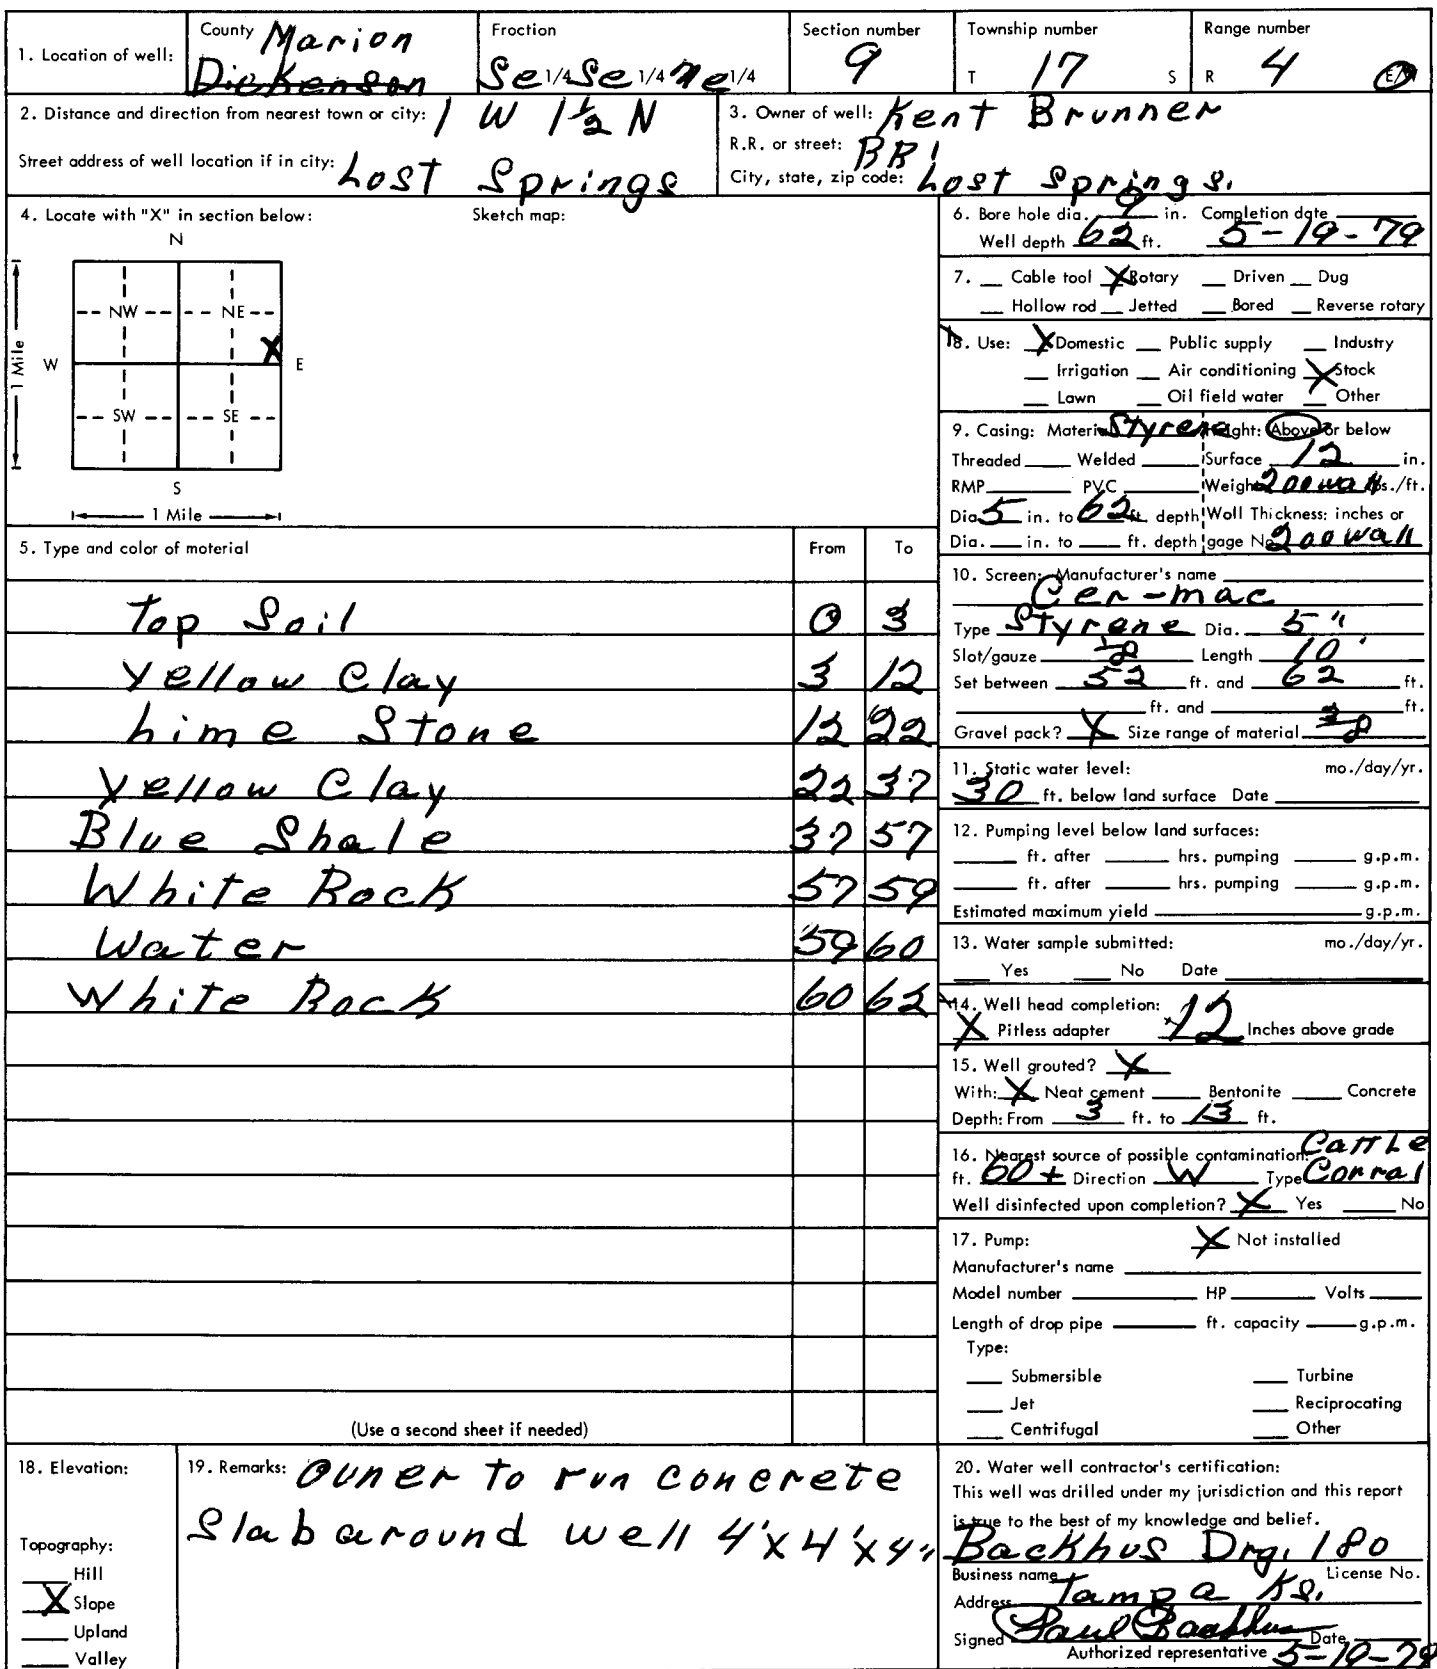 1. Location of well: County Marion Dickenson Froction Se 1/4 Se 1/4 ne 1/4 Section number 9 Township number T 17 S Range number R 4 E/W
2. Distance and direction from nearest town or city: 1 W 1 1/2 N
Street address of well location if in city: Lost Springs
3. Owner of well: Kent Brunner
R.R. or street: RR 1
City, state, zip code: Lost Springs.
4. Locate with "X" in section below: Sketch map:
N
NW NE
X
W E
SW SE
S
1 Mile
1 Mile
5. Type and color of moterial From To
Top Soil 0 3
Yellow Clay 3 12
Lime Stone 12 22
Yellow Clay 22 37
Blue Shale 37 57
White Rock 57 59
Water 59 60
White Rock 60 62
(Use a second sheet if needed)
6. Bore hole dia. 9 in. Completion date
Well depth 62 ft. 5-19-79
7. Cable tool X Rotary Driven Dug
Hollow rod Jetted Bored Reverse rotary
8. Use: X Domestic Public supply Industry
Irrigation Air conditioning X Stock
Lawn Oil field water Other
9. Casing: Material Styrene Height: Above or below
Threaded Welded Surface 12 in.
RMP PVC Weight 200 wall lbs./ft.
Dia. 5 in. to 62 ft. depth Woll Thickness: inches or
Dia. in. to ft. depth gage No. 200 wall
10. Screen: Manufacturer's name
Cer-mac
Type Styrene Dia. 5"
Slot/gauze 1/8 Length 10'
Set between 52 ft. and 62 ft.
ft. and ft.
Gravel pack? X Size range of material 3/8
11. Static water level: mo./day/yr.
30 ft. below land surface Date
12. Pumping level below land surfaces:
ft. after hrs. pumping g.p.m.
ft. after hrs. pumping g.p.m.
Estimated maximum yield g.p.m.
13. Water sample submitted: mo./day/yr.
Yes No Date
14. Well head completion:
X Pitless adapter 12 Inches above grade
15. Well grouted? X
With: X Neat cement Bentonite Concrete
Depth: From 3 ft. to 13 ft.
16. Nearest source of possible contamination: Cattle
ft. 60+ Direction W Type Corral
Well disinfected upon completion? X Yes No
17. Pump: X Not installed
Manufacturer's name
Model number HP Volts
Length of drop pipe ft. capacity g.p.m.
Type:
Submersible Turbine
Jet Reciprocating
Centrifugal Other
18. Elevation:
Topography:
Hill
X Slope
Upland
Valley
19. Remarks: Owner to run concrete
Slab around well 4'x4'x4"
20. Water well contractor's certification:
This well was drilled under my jurisdiction and this report
is true to the best of my knowledge and belief.
Backhus Drg. 180
Business name License No.
Address Tampa Ks.
Signed Paul Backhus Date
Authorized representative 5-19-79